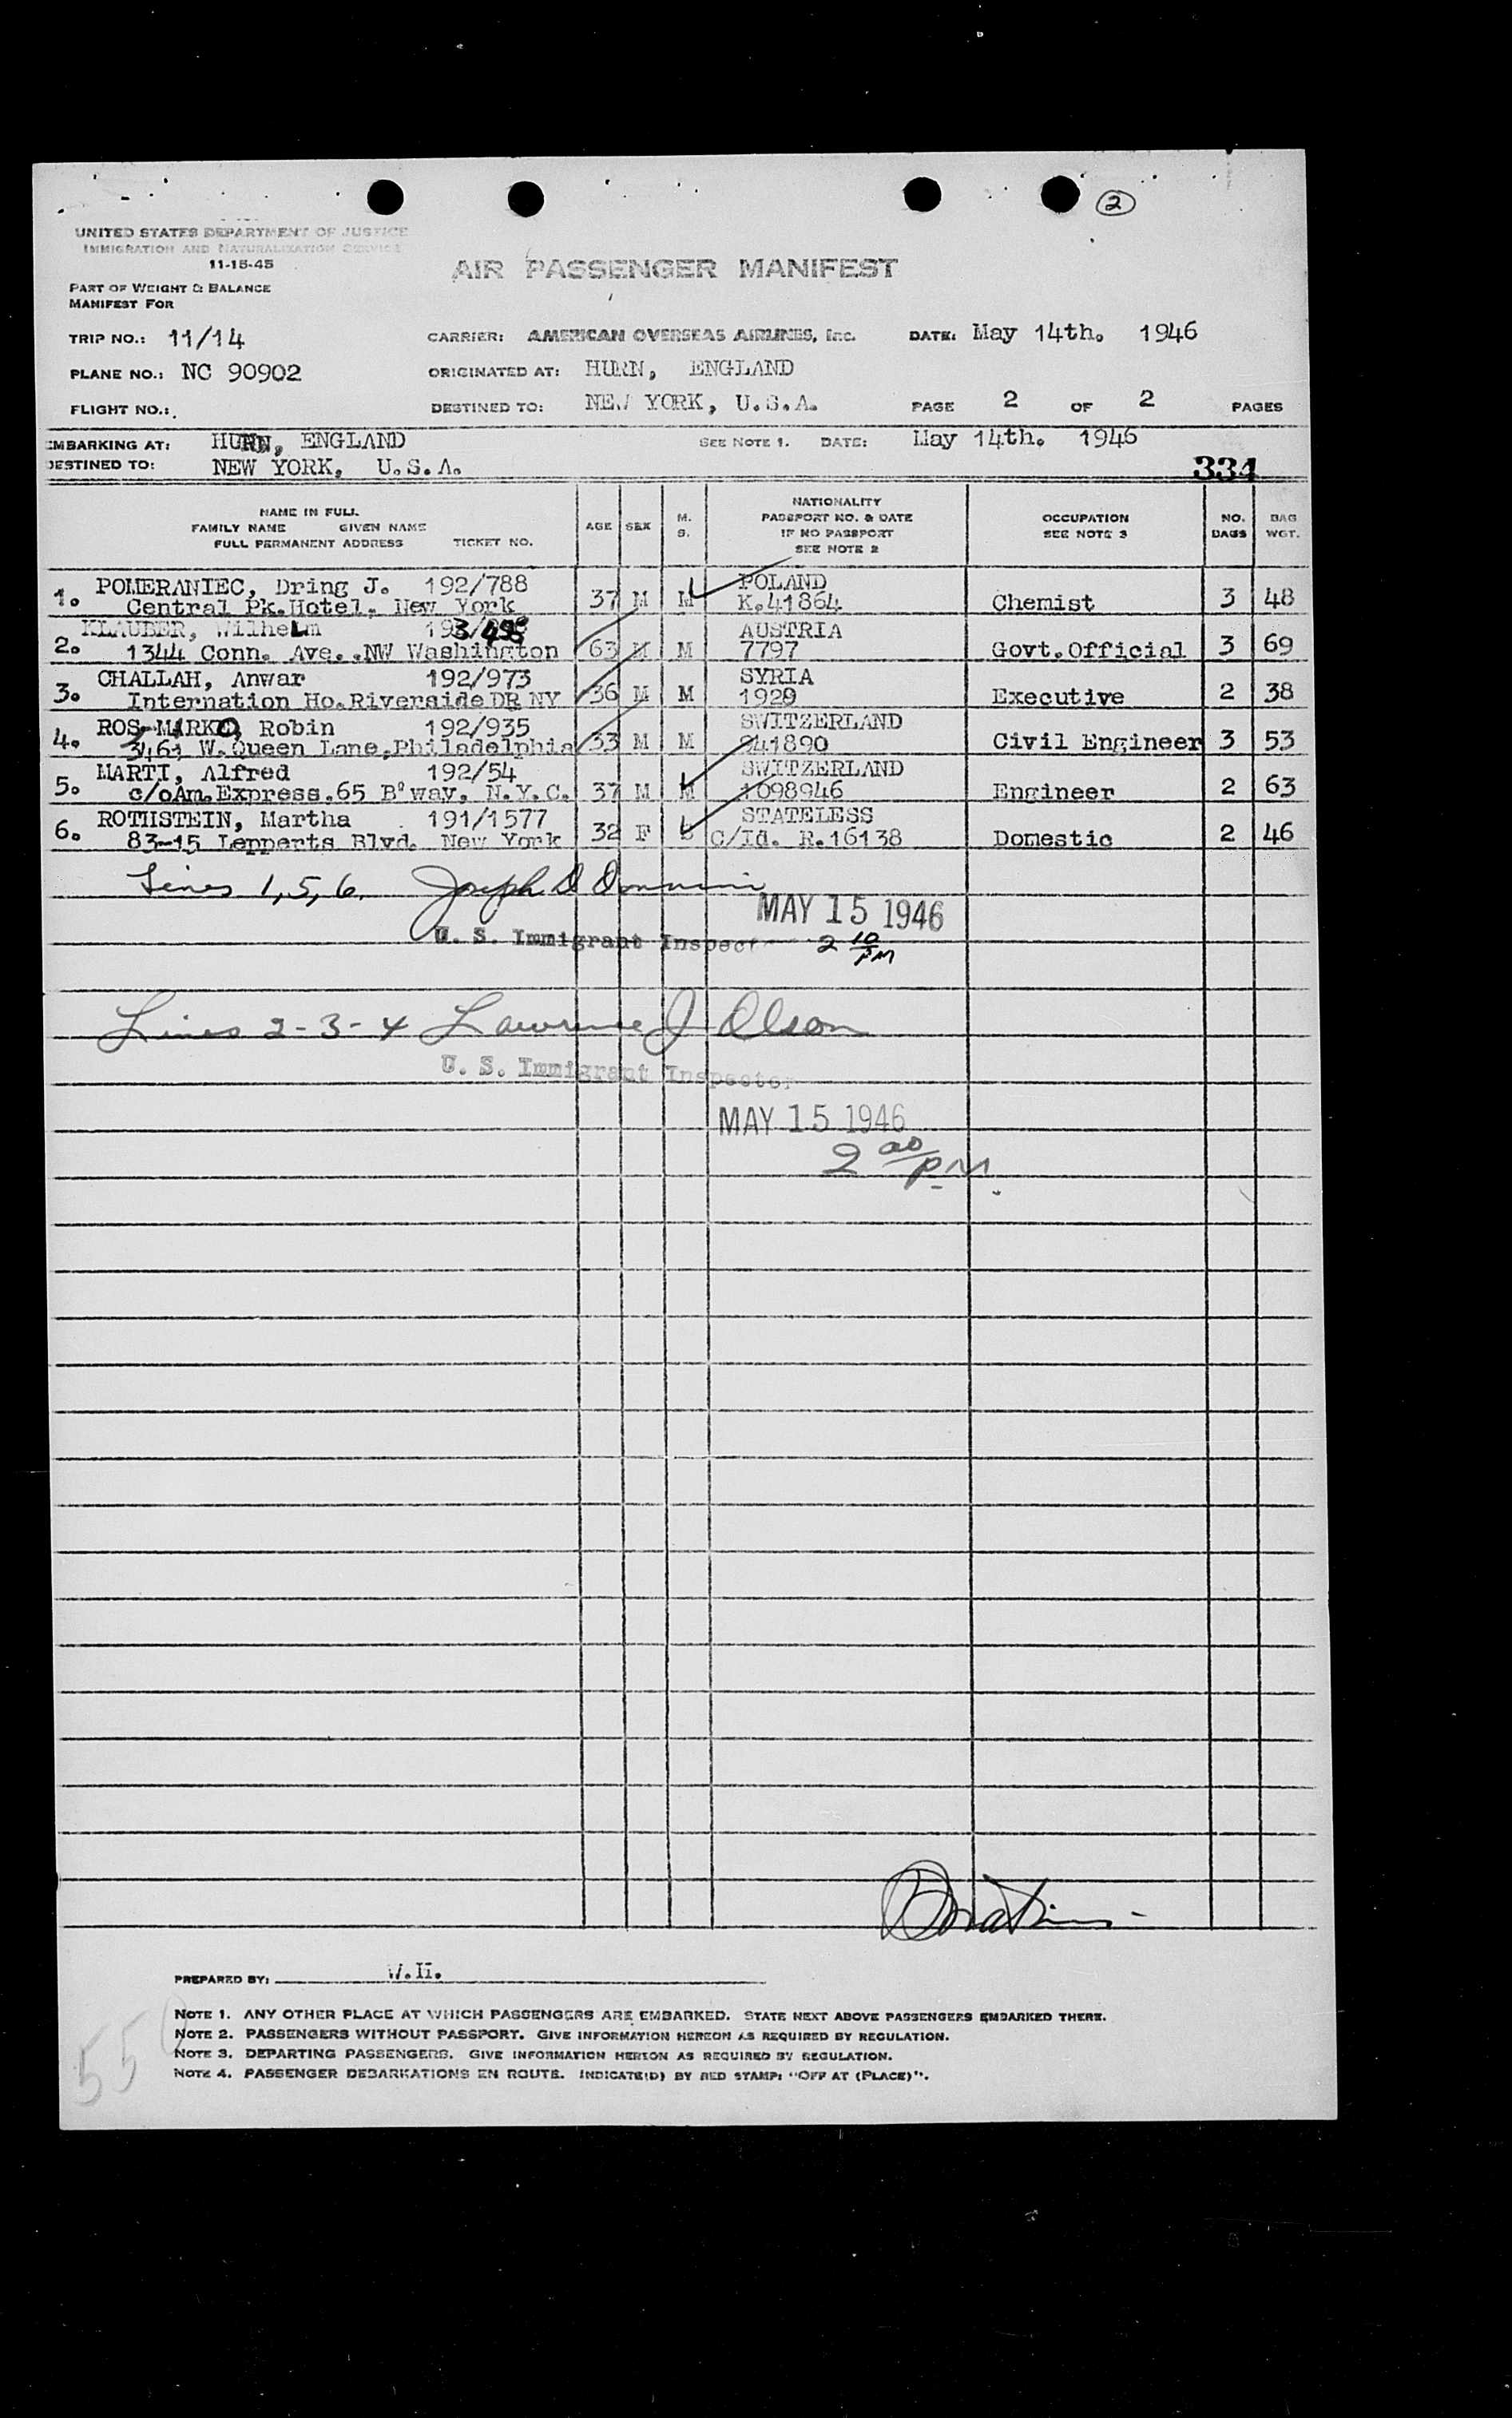 2
UNITED STATES DEPARTMENT OF JUSTICE
IMMIGRATION AND NATURALIZATION SERVICE
11-15-45
AIR PASSENGER MANIFEST
PART OF WEIGHT & BALANCE
MANIFEST FOR
TRIP NO.: 11/14 CARRIER: AMERICAN OVERSEAS AIRLINES, Inc. DATE: May 14th. 1946
PLANE NO.: NC 90902 ORIGINATED AT: HURN, ENGLAND
FLIGHT NO.: DESTINED TO: NEW YORK, U.S.A. PAGE 2 OF 2 PAGES
EMBARKING AT: HURN, ENGLAND SEE NOTE 1. DATE: May 14th. 1946
DESTINED TO: NEW YORK, U.S.A. 334
NAME IN FULL
FAMILY NAME GIVEN NAME
FULL PERMANENT ADDRESS TICKET NO.
AGE SEX M. S.
NATIONALITY
PASSPORT NO. & DATE
IF NO PASSPORT
SEE NOTE 2
OCCUPATION
SEE NOTE 3
NO. BAGS BAG WGT.
1. POMERANIEC, Dring J. 192/788 POLAND
Central Pk.Hotel, New York 37 M M K.41864 Chemist 3 48
2. KLAUBER, Wilhelm AUSTRIA
1344 Conn. Ave..NW Washington 63 M M 7797 Govt.Official 3 69
3. CHALLAH, Anwar 192/973 SYRIA
Internation Ho.Riverside DR NY 36 M M 1929 Executive 2 38
4. ROS-MARKO, Robin 192/935 SWITZERLAND
3461 W.Queen Lane,Philadelphia 33 M M 841890 Civil Engineer 3 53
5. MARTI, Alfred 192/54 SWITZERLAND
c/oAm.Express.65 B'way, N.Y.C. 37 M M 1098946 Engineer 2 63
6. ROTHSTEIN, Martha 191/1577 STATELESS
83-15 Lepperts Blvd. New York 32 F S C/Id. R.16138 Domestic 2 46
Lines 1, 5, 6. Joseph D
MAY 15 1946
U. S. Immigrant Inspector 2 10 PM
Lines 2-3-4 Lawrence J Olson
U. S. Immigrant Inspector
MAY 15 1946
2 00 PM
PREPARED BY: W.H.
NOTE 1. ANY OTHER PLACE AT WHICH PASSENGERS ARE EMBARKED. STATE NEXT ABOVE PASSENGERS EMBARKED THERE.
NOTE 2. PASSENGERS WITHOUT PASSPORT. GIVE INFORMATION HEREON AS REQUIRED BY REGULATION.
NOTE 3. DEPARTING PASSENGERS. GIVE INFORMATION HEREON AS REQUIRED BY REGULATION.
NOTE 4. PASSENGER DEBARKATIONS EN ROUTE. INDICATE(D) BY RED STAMP: "OFF AT (PLACE)".